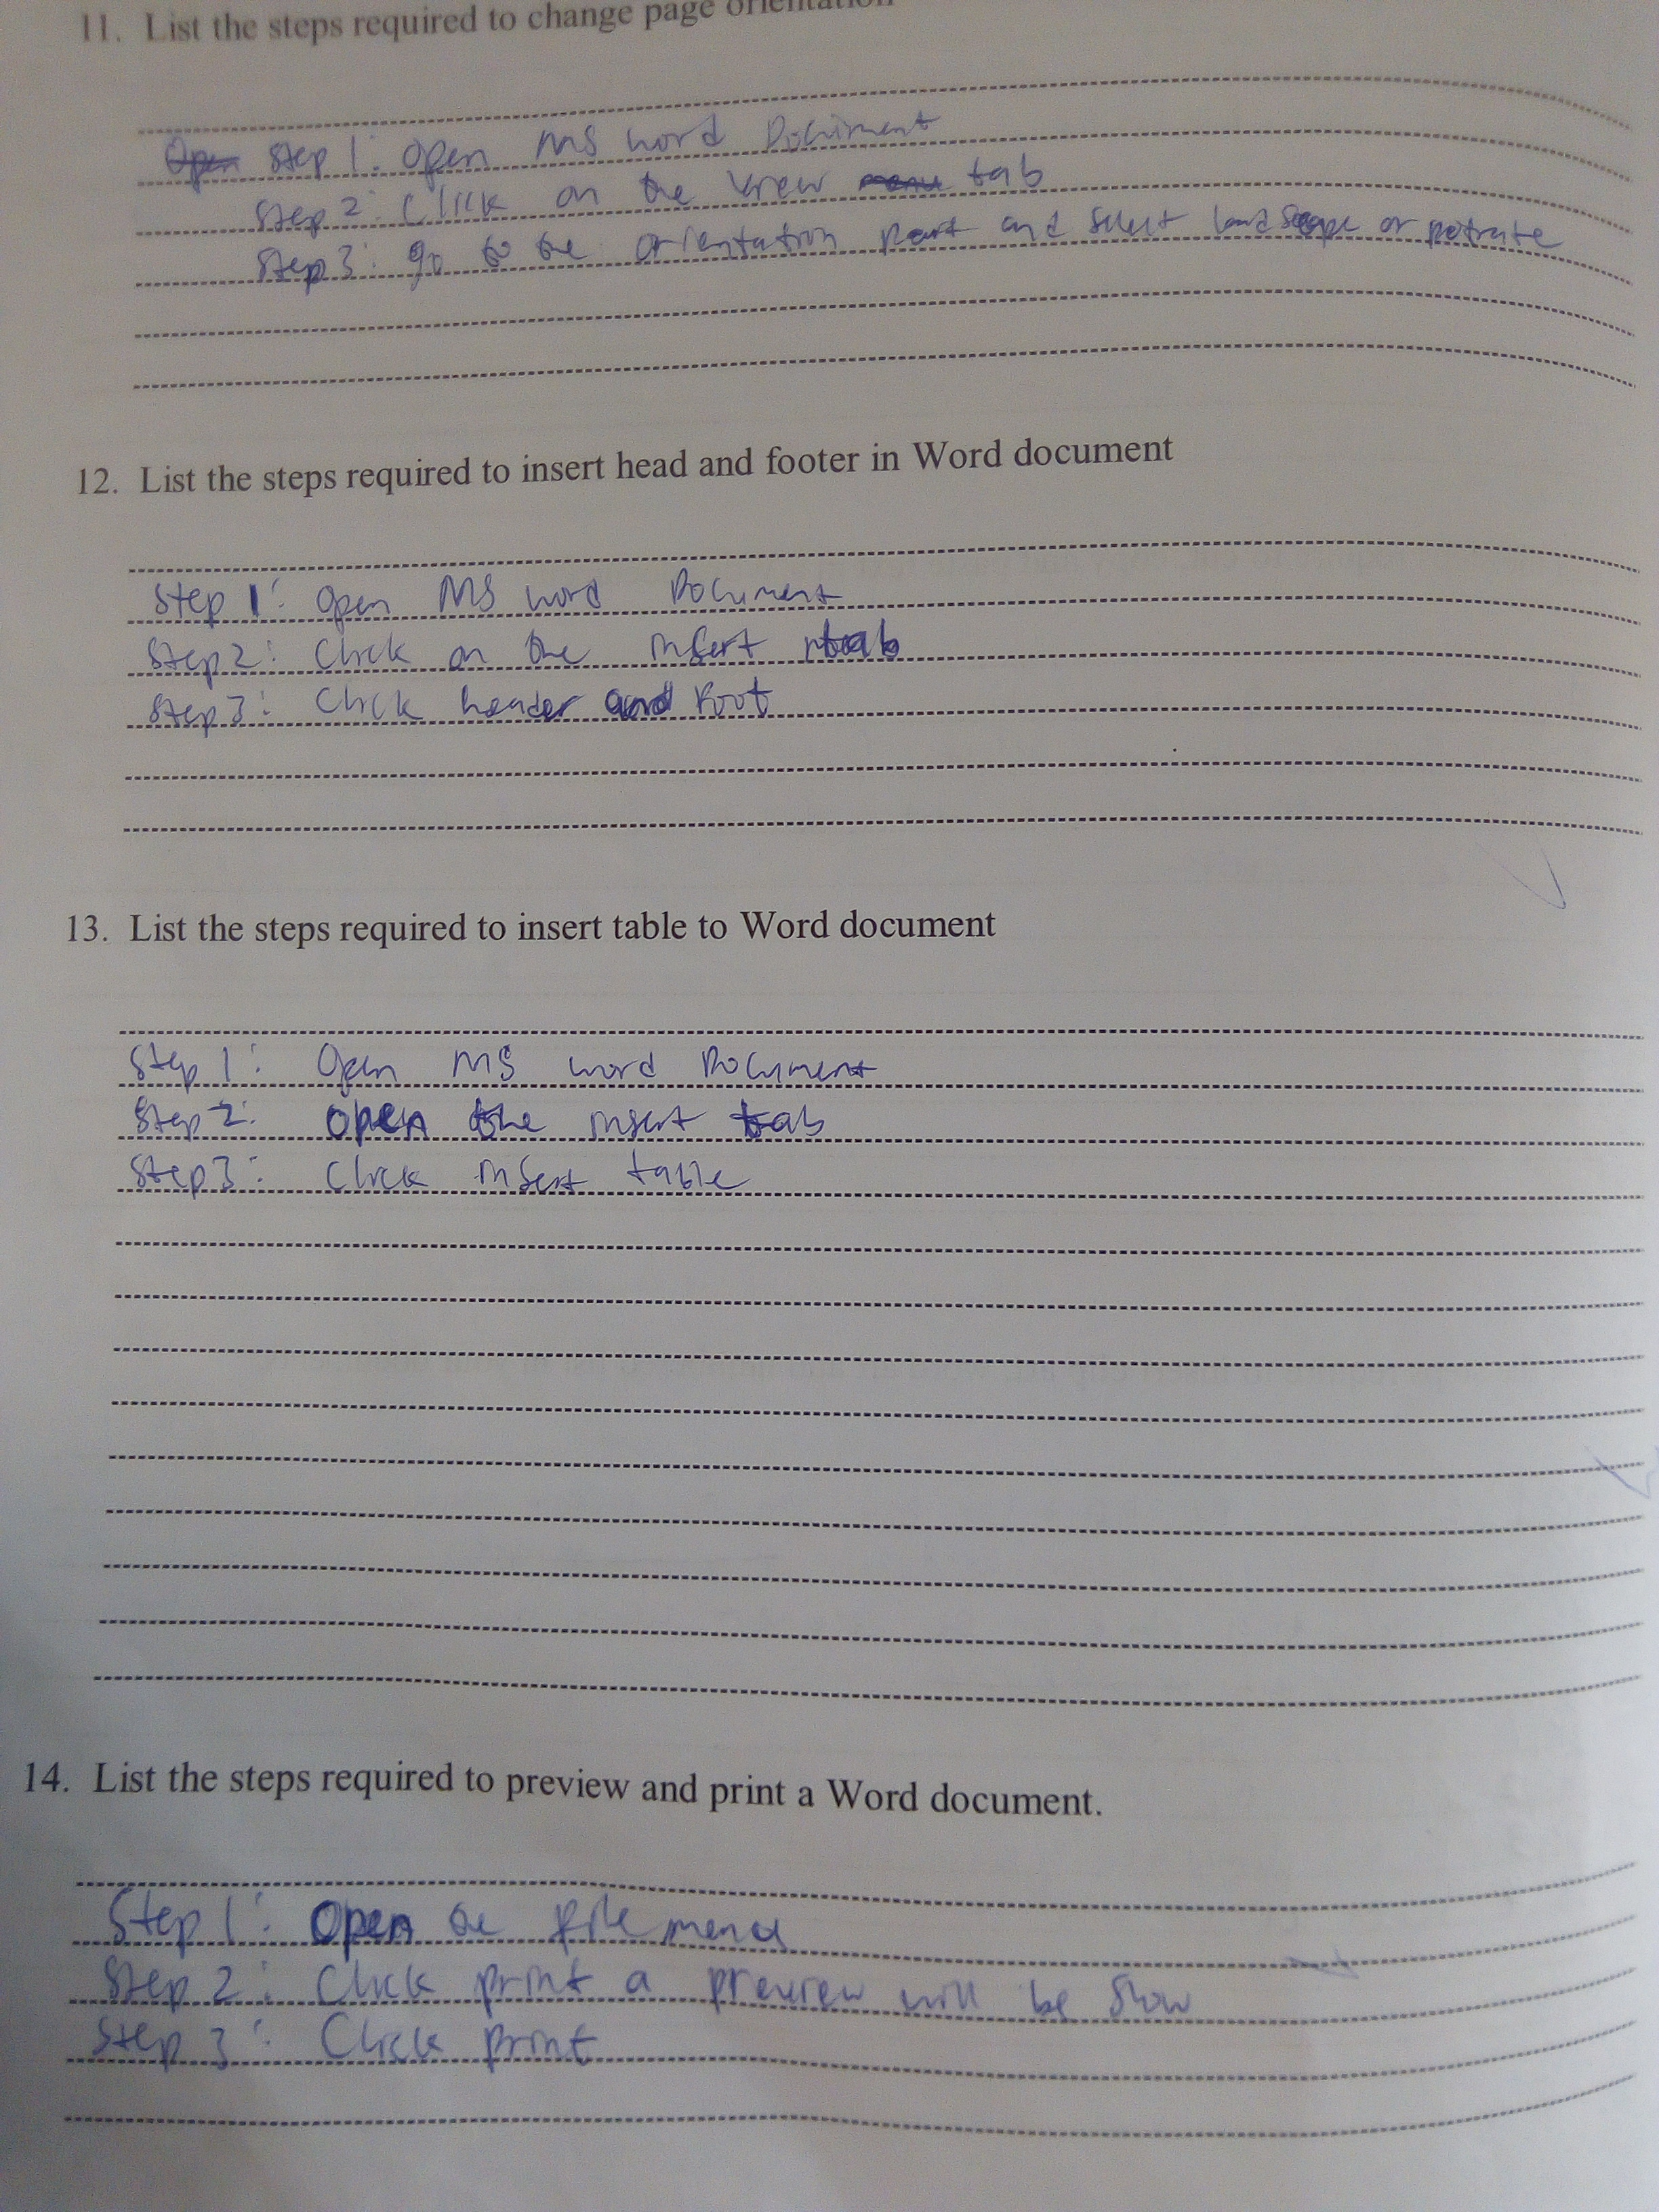 11. List the steps required to change page orientation
Open Step 1: Open MS word Document
Step 2: Click on the View menu tab
Step 3: go to the orientation part and select landscape or potrate
12. List the steps required to insert head and footer in Word document
Step 1: Open MS word Document
Step 2: Click on the insert tab
Step 3: Click header and Foot
13. List the steps required to insert table to Word document
Step 1: Open MS word Document
Step 2: open the insert tab
Step 3: Click insert table
14. List the steps required to preview and print a Word document.
Step 1: Open the file menu
Step 2: Click print a preview will be show
Step 3: Click print